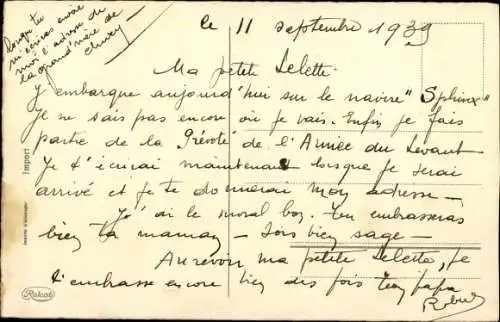 Lorsque tu
m'écriras envoie
moi l'adresse de
la grand'mère de
le 11 septembre 1939
Ma petite Lelette.
J'embarque aujourd'hui sur le navire "Sphinx"
Je ne sais pas encore où je vais. Enfin je fais
partie de la Prévoté de l'Armée du Levant
Je t'écrirai maintenant lorsque je serai
arrivé et je te donnerai mon adresse -
J'ai le moral bon. Tu embrasseras
bien ta maman - Sois bien sage -
Au revoir ma petite Lelette, je
t'embrasse encore bien des fois ton papa
Import
Importé d'Allemagne